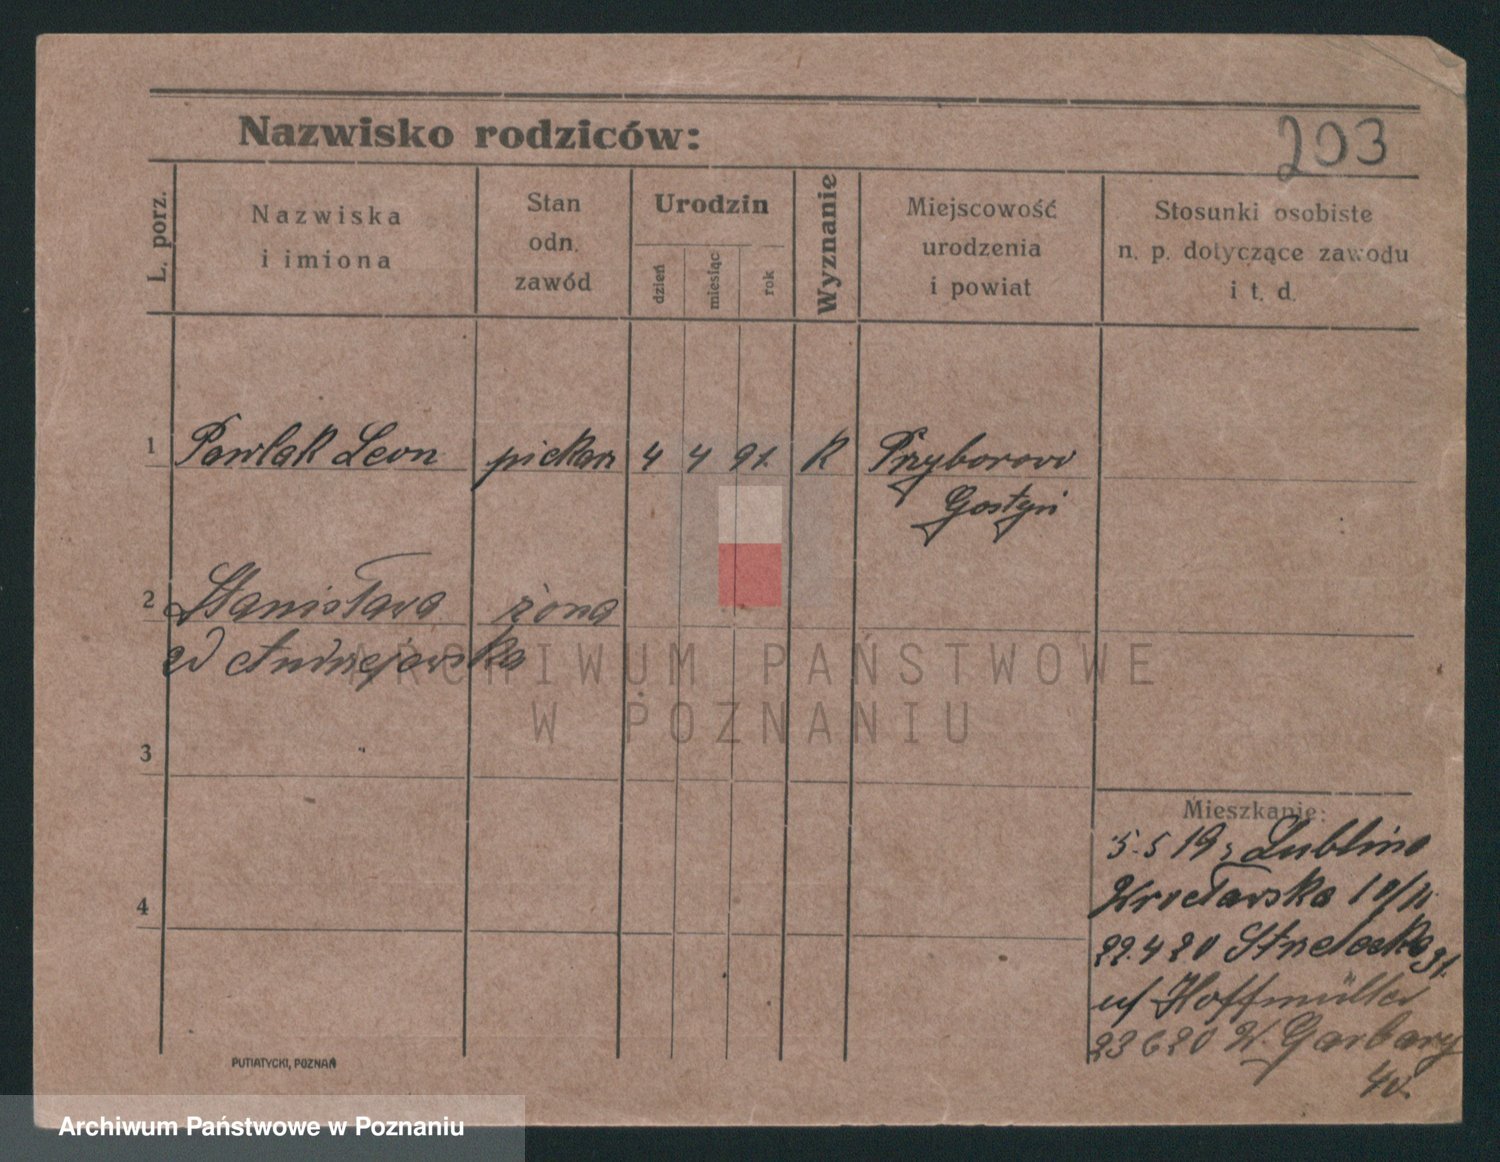 Nazwisko rodziców:
203
L. porz.
Nazwiska
i imiona
Stan
odn.
zawód
Urodzin
dzień
miesiąc
rok
Wyznanie
Miejscowość
urodzenia
i powiat
Stosunki osobiste
n. p. dotyczące zawodu
i t. d.
1 Pawlak Leon piekarz 4 4 91. K Przyborowo
Gostyń
2 Stanisława żona
z d Andrzejewska
ARCHIWUM PAŃSTWOWE
W POZNANIU
3
4
Mieszkanie:
5.5 19 z Lublina
Wrocławska 18/
22.4 20 Strzelecka 31.
u/ Hoffmüller
23 6 20 W. Garbary
40.
PUTIATYCKI, POZNAŃ
Archiwum Państwowe w Poznaniu